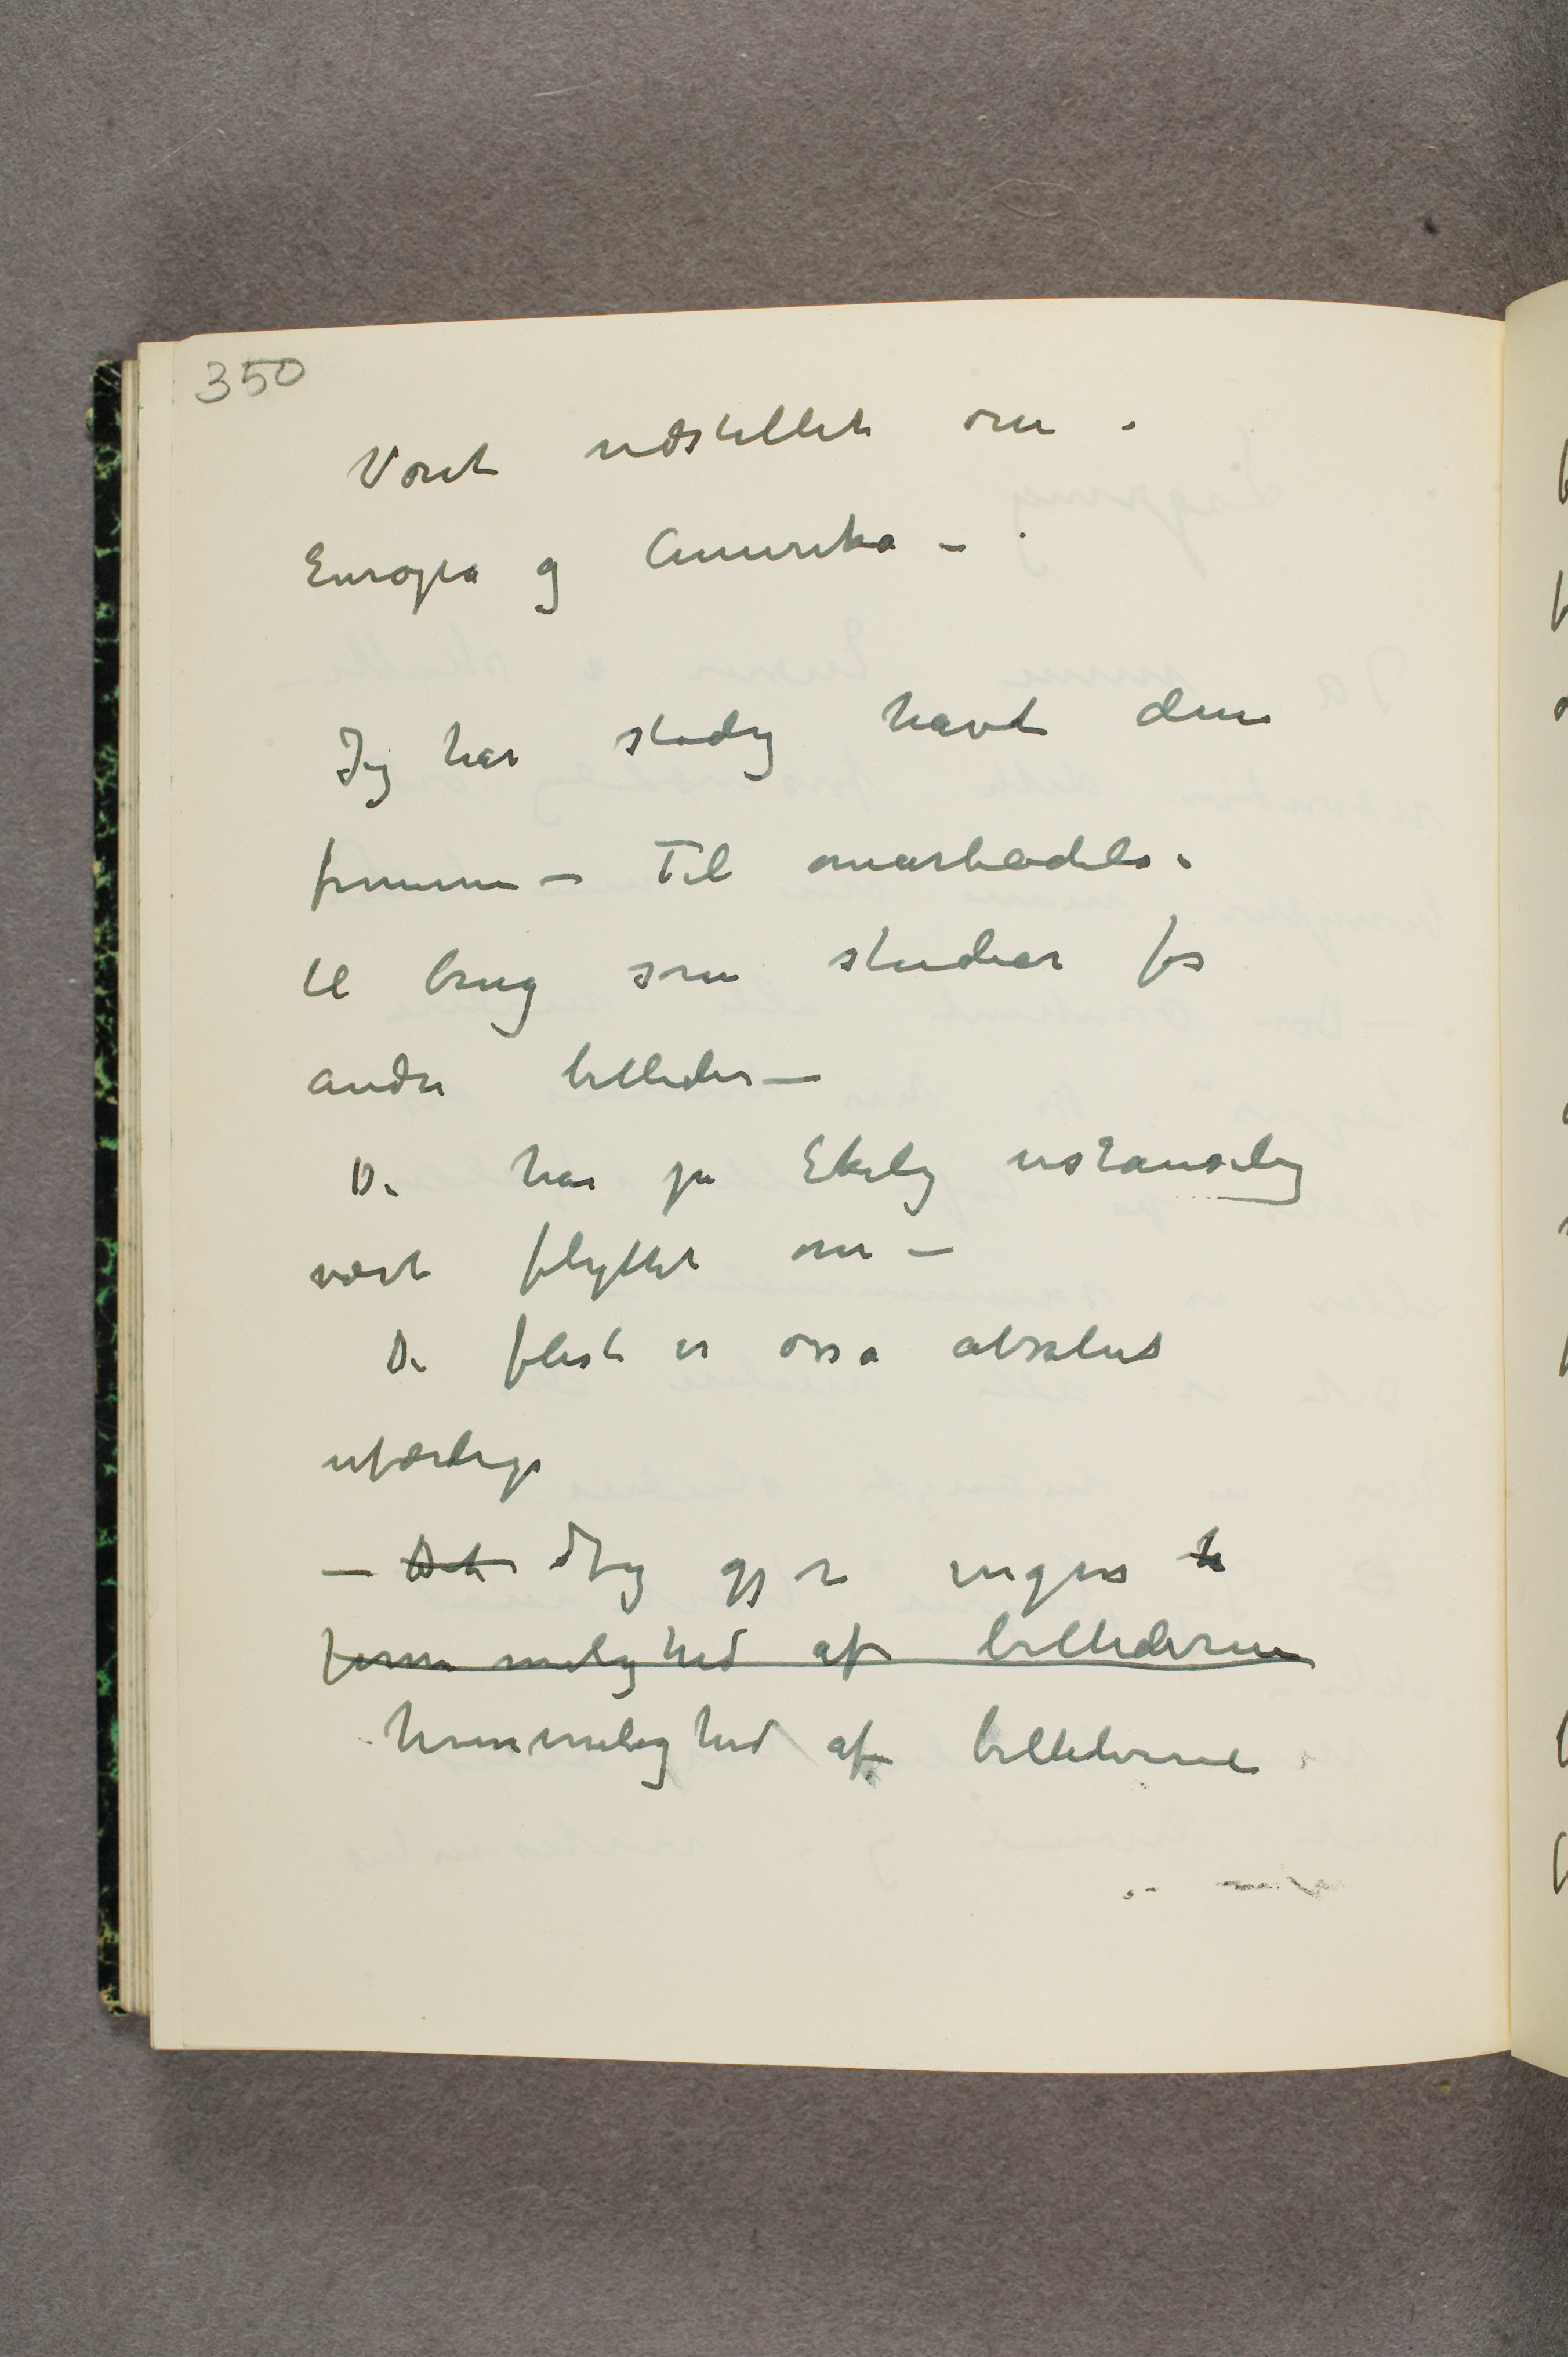 350
Vært udstillet om i
Europa og Amerika –
Jeg har stadig havt dem
fremme – Til omarbeidelse
til brug som studier for
andre billeder –
De har på Ekely ustanselig
vært flyttet om –
De fleste er osså absolut
uferdige
– Det Jeg gjør ingen h
hemmelighed af billederne
hemmelighed af billederne